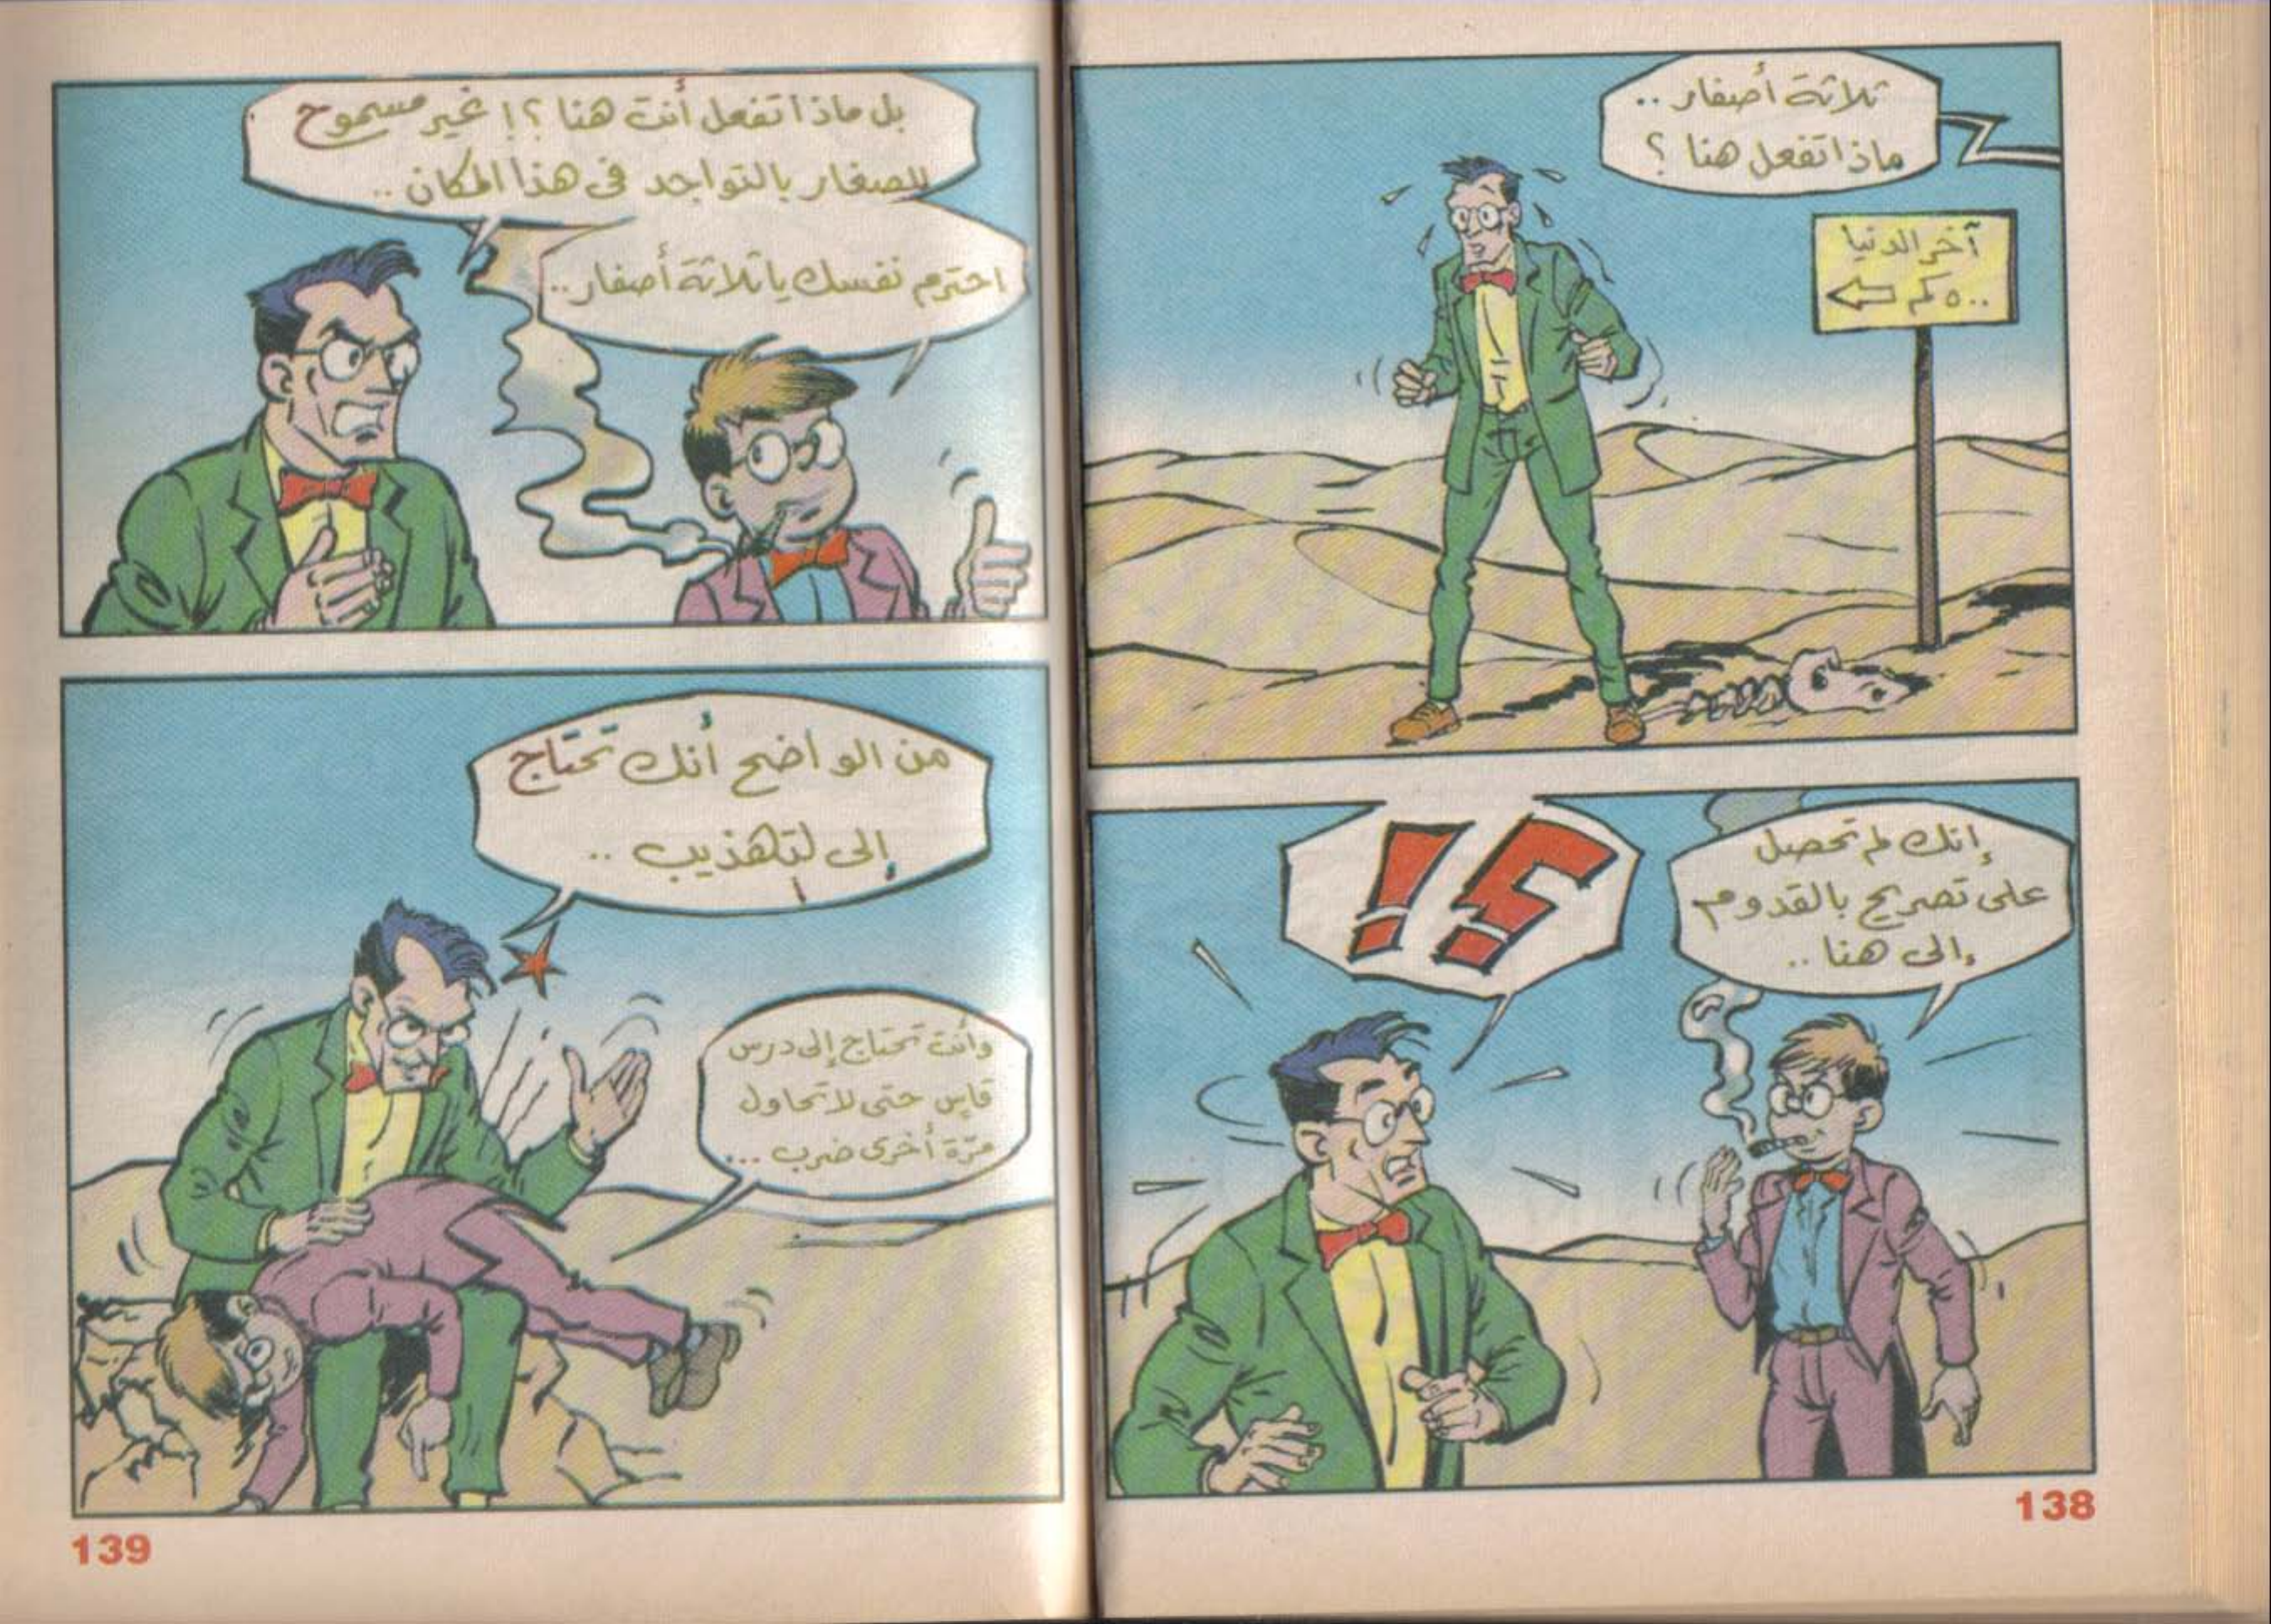 ثلاثة أصفار ..
ماذا تفعل هنا ؟
آخر الدنيا
٥٠٠ كم
؟!
إنك لم تحصل
على تصريح بالقدوم
إلى هنا ..
138
بل ماذا تفعل أنت هنا ؟! غير مسموح
للصغار بالتواجد فى هذا المكان ..
احترم نفسك يا ثلاثة أصفار ..
من الواضح أنك تحتاج
إلى لتهذيب ..
وأنت تحتاج إلى درس
قاس حتى لا تحاول
مرّة أخرى ضرب ...
139